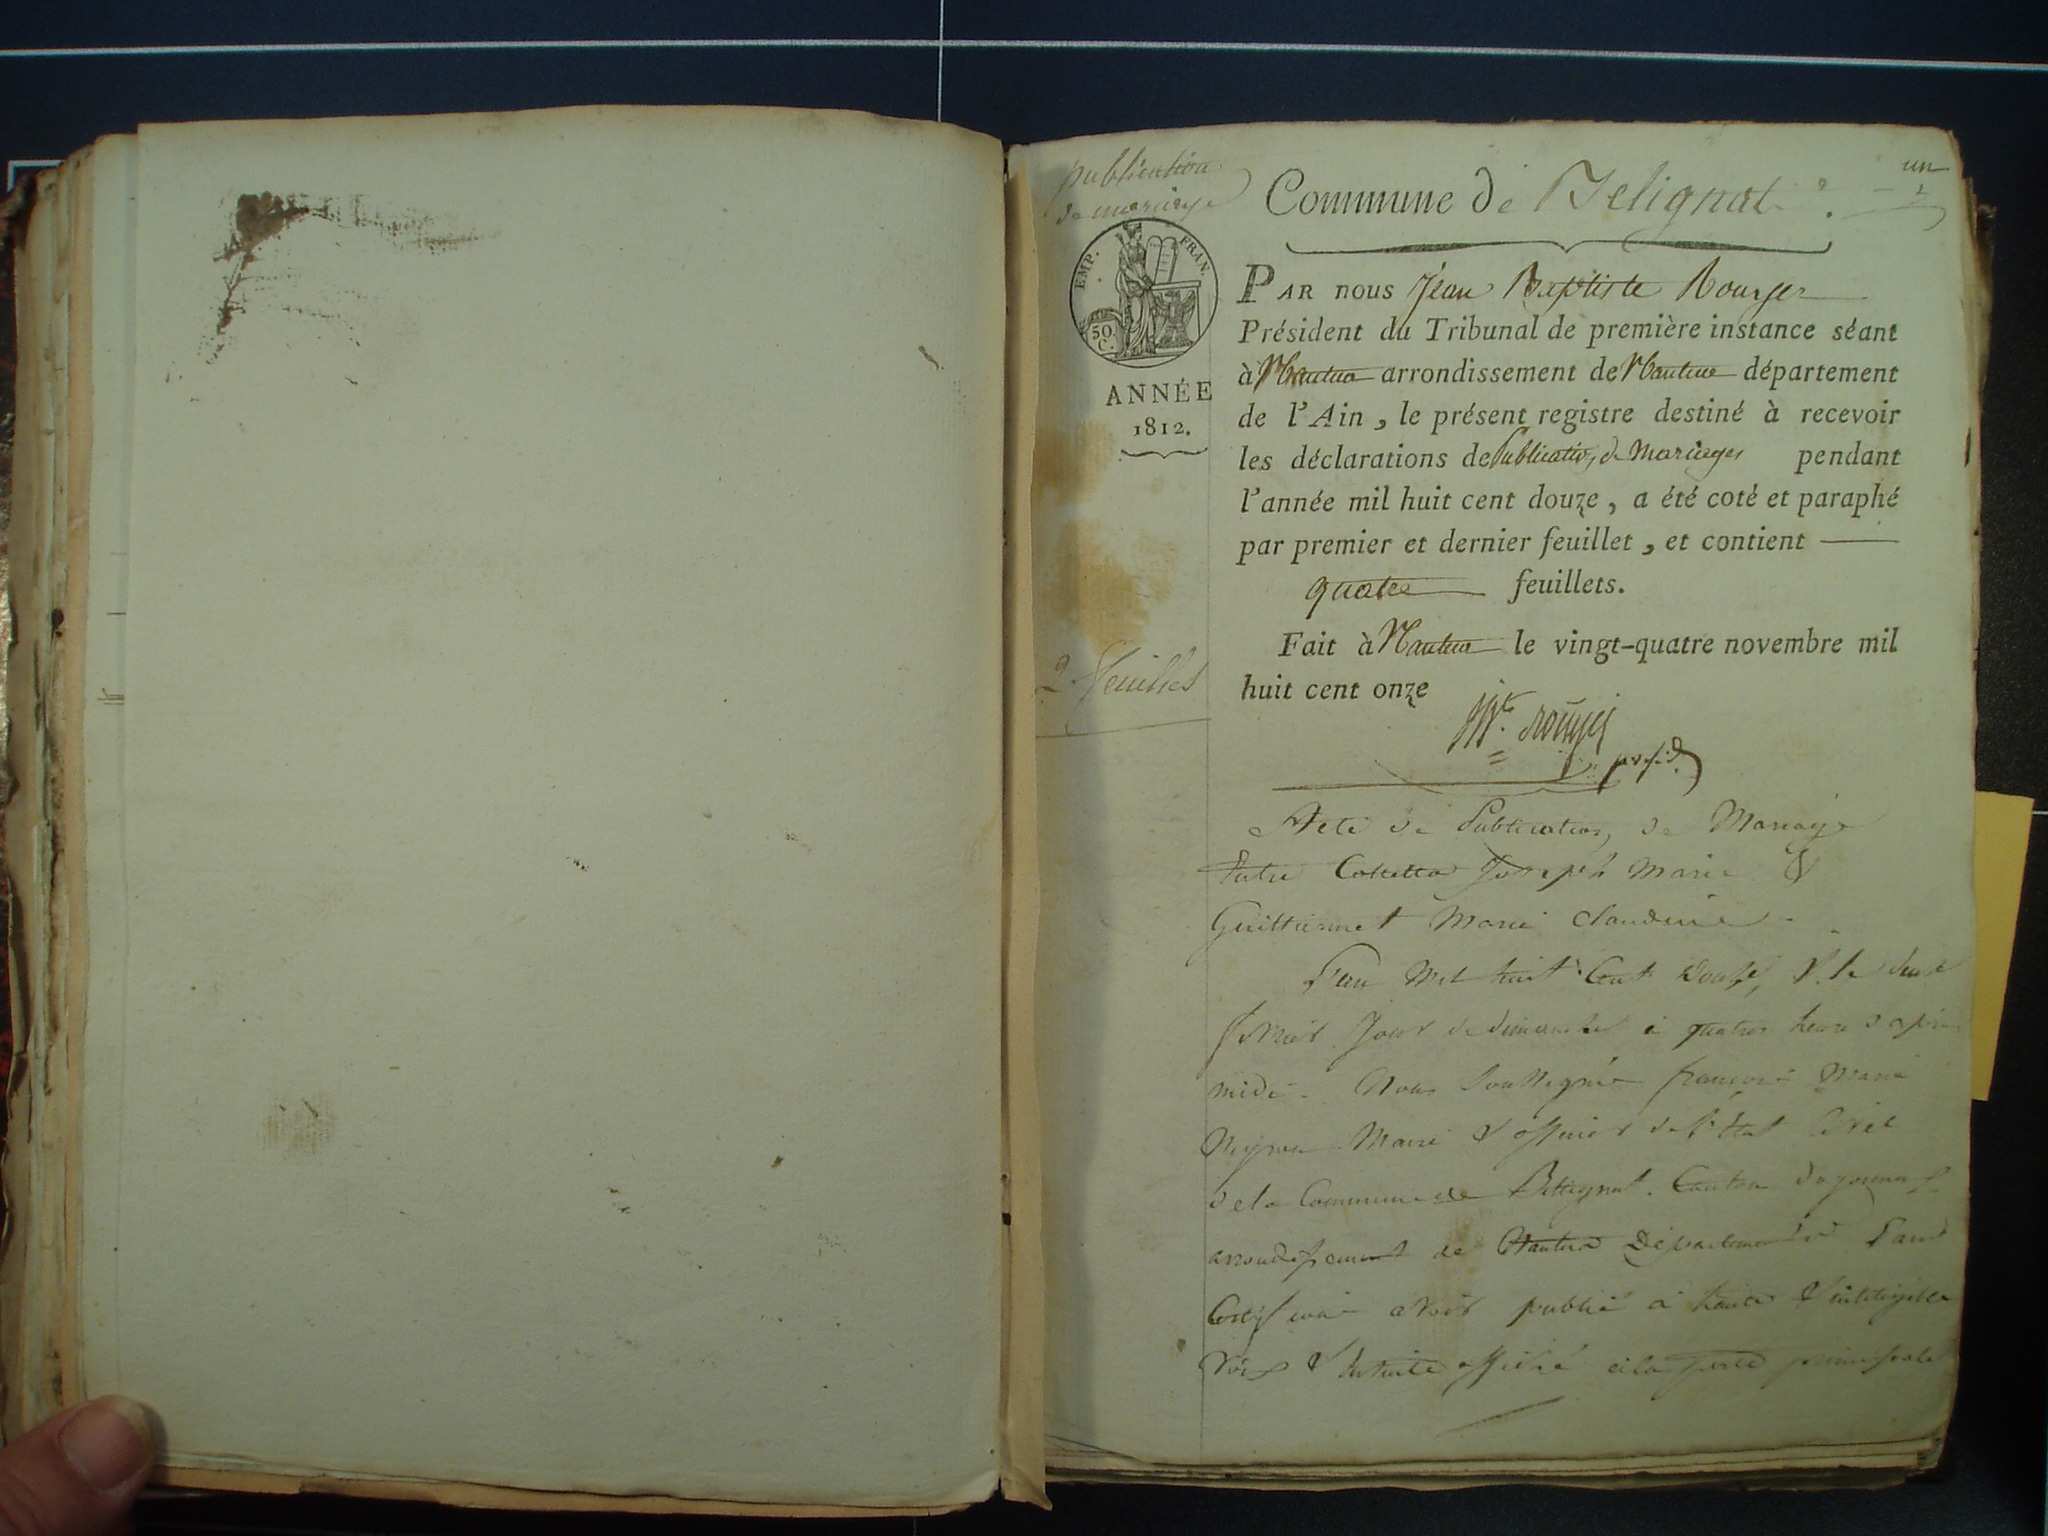 publication
de mariage
Commune de Belignat.
un
1
EMP. FRAN.
50
C.
ANNÉE
1812.
2 feuilles
PAR nous Jean Baptiste Rouyer
Président du Tribunal de première instance séant
à Nantua arrondissement de Nantua département
de l'Ain, le présent registre destiné à recevoir
les déclarations de Publication, de Mariages pendant
l'année mil huit cent douze, a été coté et paraphé
par premier et dernier feuillet, et contient
quatre feuillets.
Fait à Nantua le vingt-quatre novembre mil
huit cent onze
présid.
Acte de Publication, de Mariage
Entre Joseph Marie &
Marie Claudine
L'an Mil huit Cent Douze, & le
jour de dimanche à quatre heures après
midi. Nous Soussigné françois Marie
Maire & officier de l'Etat Civil
de la Commune de Bélignat. Canton d'oyonnax
arrondissement de Nantua Département de l'ain
Certifions avoir publié à haute & intelligible
voix & Ensuite affiché à la porte principale